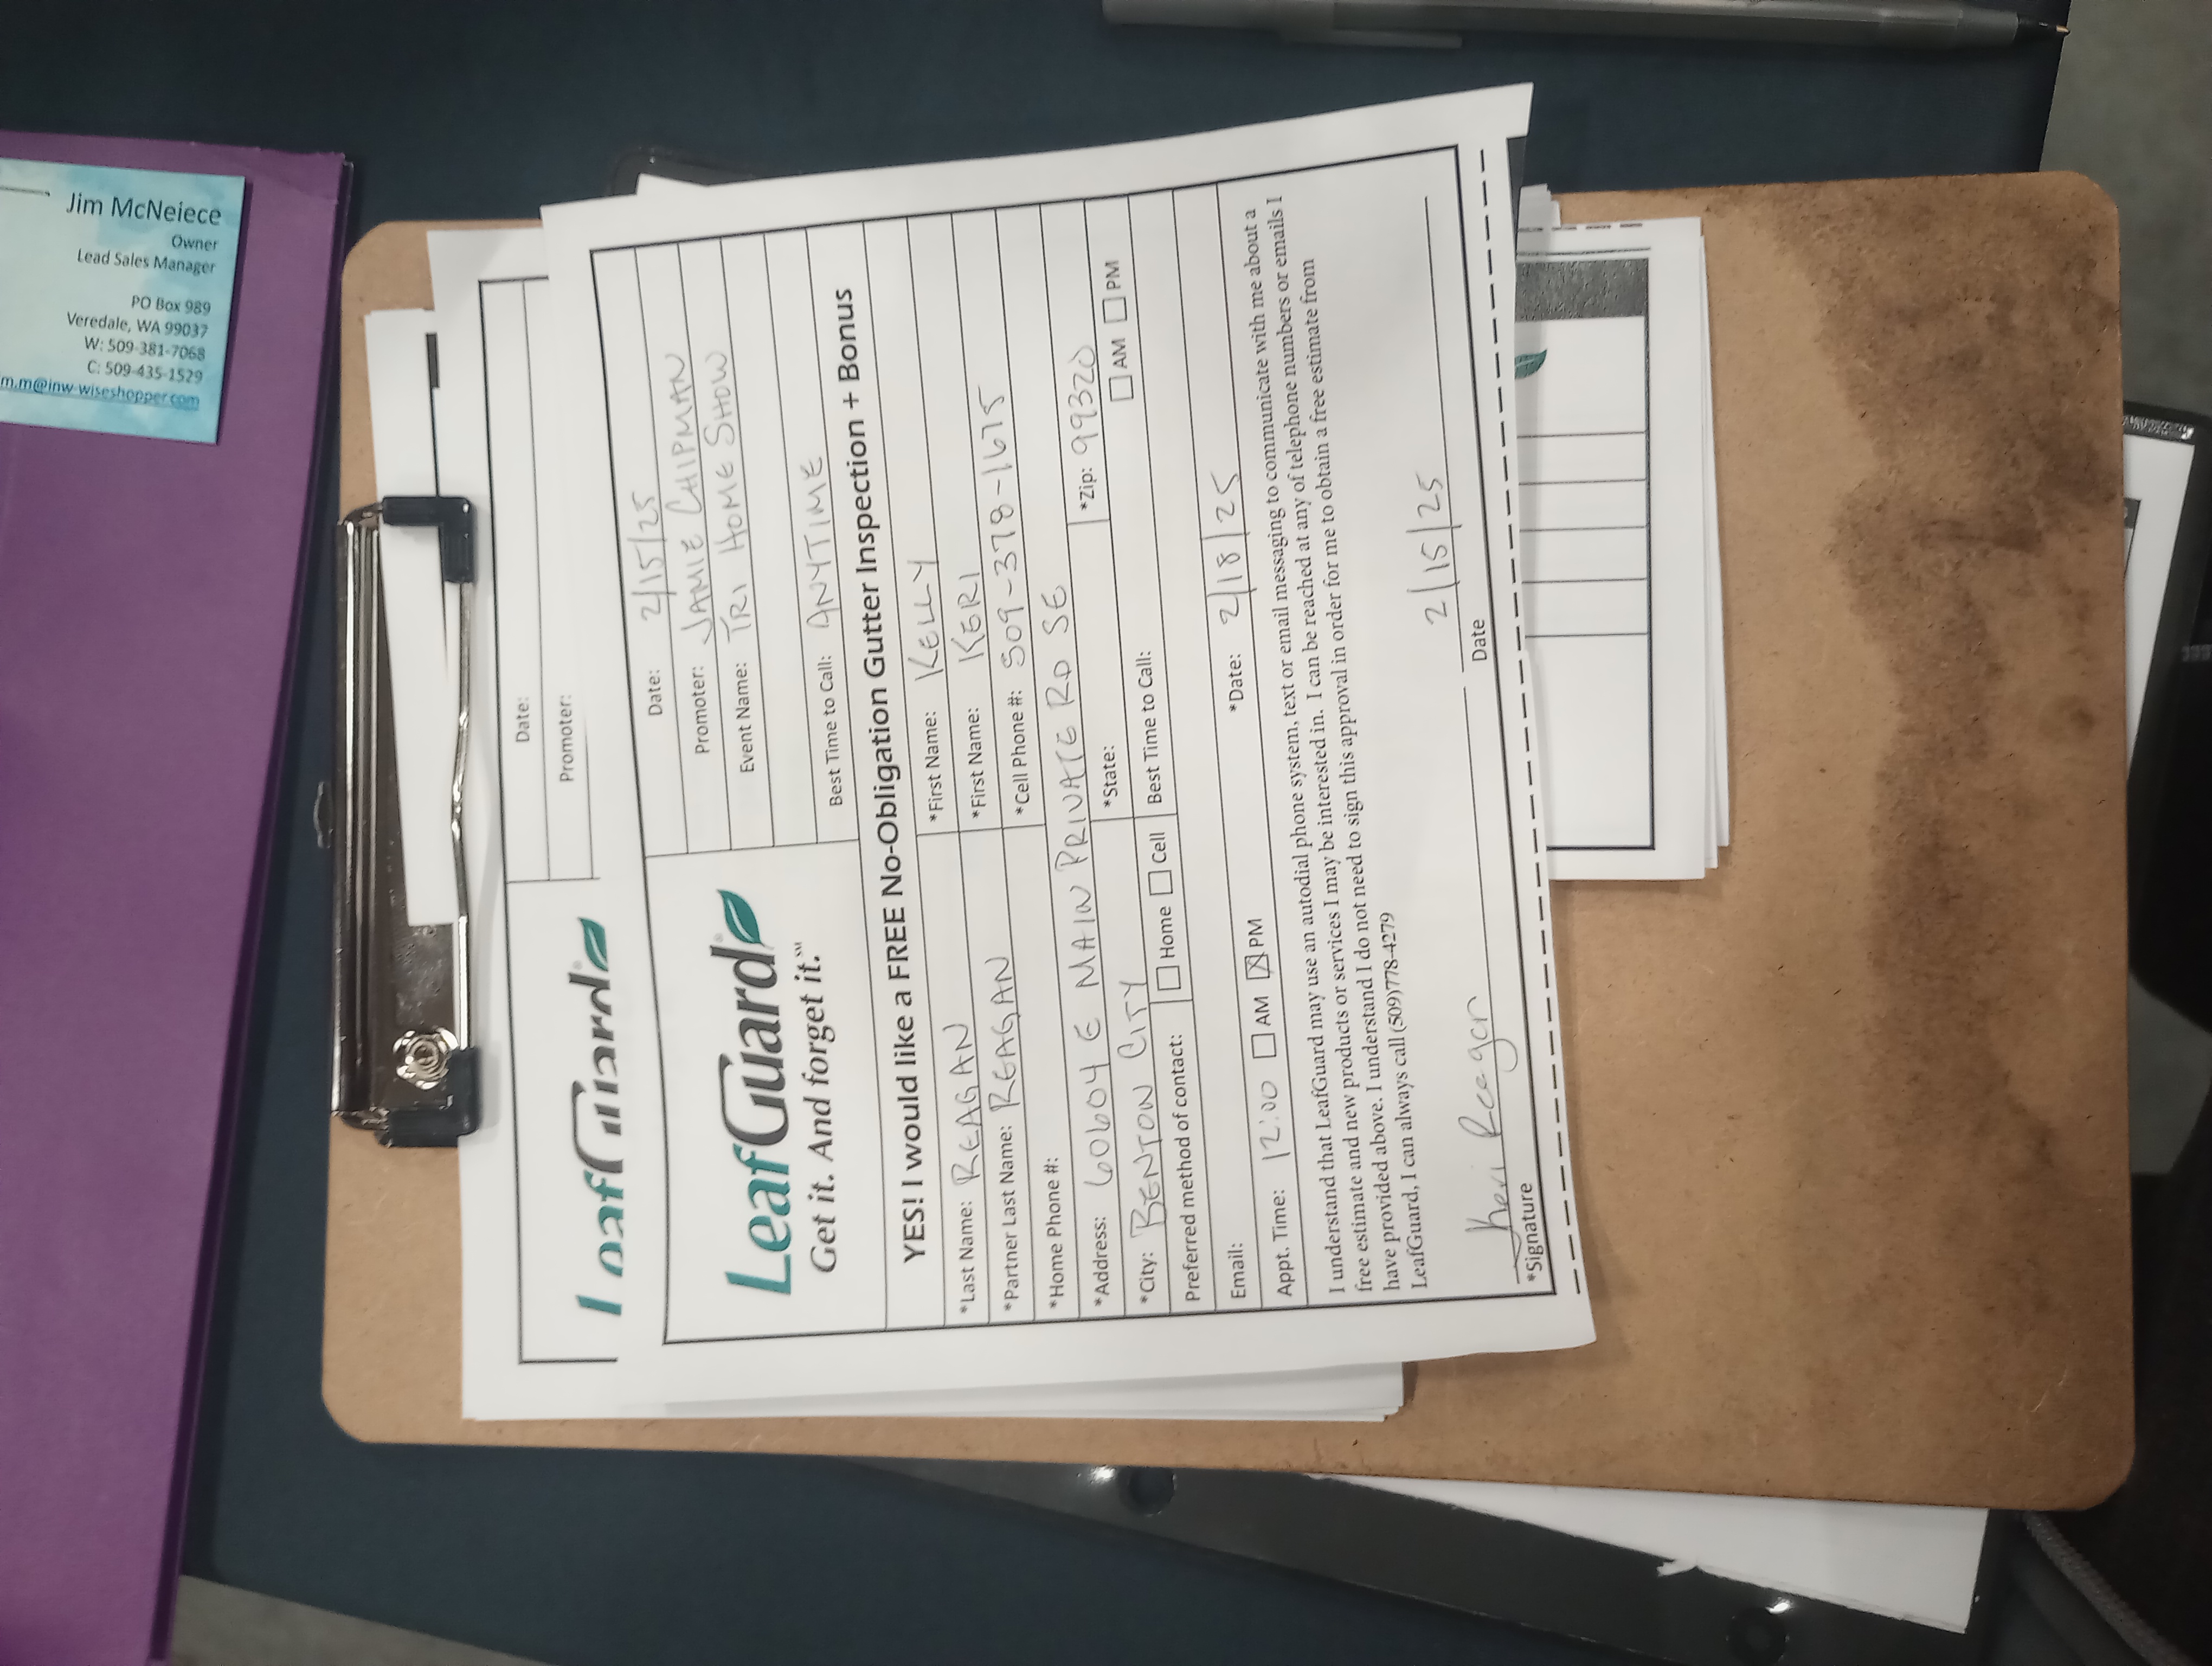 Jim McNeiece
Owner
Lead Sales Manager
PO Box 989
Veredale, WA 99037
W: 509-381-7068
C: 509-435-1529
m.m@inw-wiseshopper.com
Date:
Promoter:
LeafGuard
Date: 2/15/25
Promoter: JAMIE CHIPMAN
Event Name: TRI HOME SHOW
LeafGuard
Get it. And forget it.℠
Best Time to Call: ANYTIME
YES! I would like a FREE No-Obligation Gutter Inspection + Bonus
*Last Name: REAGAN *First Name: KELLY
*Partner Last Name: REAGAN *First Name: KERI
*Home Phone #: *Cell Phone #: 509-378-1675
*Address: 60604 E MAIN PRIVATE RD SE
*City: BENTON CITY *State: *Zip: 99320
Preferred method of contact: Home Cell Best Time to Call: AM PM
Email:
Appt. Time: 12:00 AM PM *Date: 2/18/25
I understand that LeafGuard may use an autodial phone system, text or email messaging to communicate with me about a
free estimate and new products or services I may be interested in. I can be reached at any of telephone numbers or emails I
have provided above. I understand I do not need to sign this approval in order for me to obtain a free estimate from
LeafGuard, I can always call (509)778-4279
Keri Reagan 2/15/25
*Signature Date